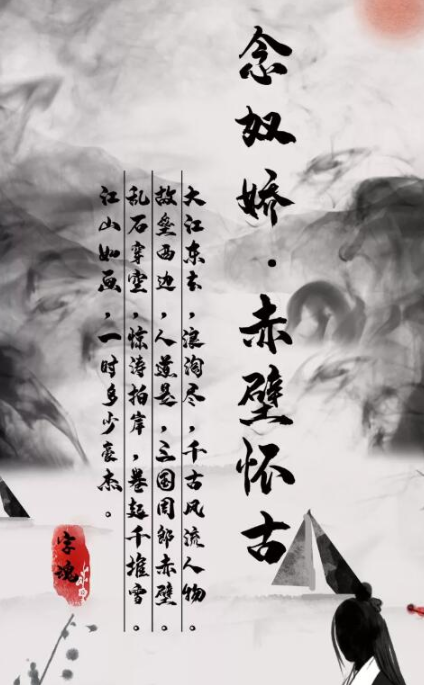 念奴娇·赤壁怀古
大江东去,浪淘尽,千古风流人物。
故垒西边,人道是,三国周郎赤壁。
乱石穿空,惊涛拍岸,卷起千堆雪。
江山如画,一时多少豪杰。
字魂